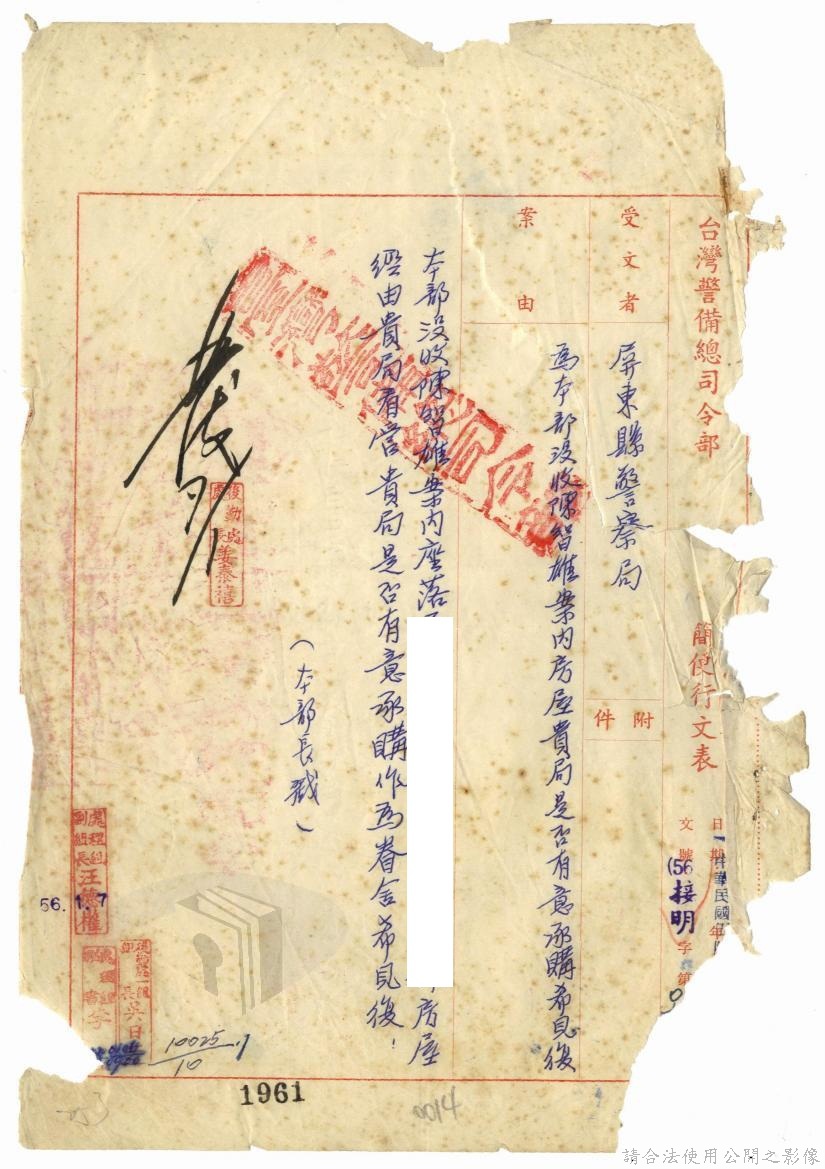 台灣警備總司令部
簡便行文表
日期
中華民國
年
文號
(56)
接明
字第
受文者
屏東縣警察局
附件
案由
為本部沒收陳智雄案內房屋貴局是否有意承購希見復
本部沒收陳智雄案內座落
房屋
經由貴局看管貴局是否有意承購作為眷舍希見復!
(本部長戳)
後勤處
處長姜泰禧
處理組
副組長汪德權
56.1.7
10025
10
1961
0014
請合法使用公開之影像